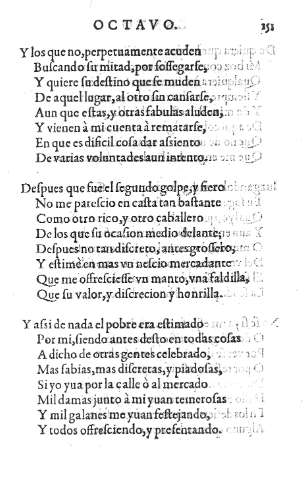 OCTAVO. 151
Y los que no, perpetuamente acuden
Buscando su mitad, por sossegarse,
Y quiere su destino que se muden
De aquel lugar, al otro sin cansarse,
Aun que estas, y otras fabulas aluden,
Y vienen à mi cuenta à rematarse,
En que es dificil cosa dar assiento
De varias voluntades aun intento.
Despues que fue el segundo golpe, y fiero
No me parescio en casta tan bastante
Como otro rico, y otro cauallero
De los que su ocasion medio delante,
Despues no tan discreto, antes grossero,
Y estimè en mas vn nescio mercadante
Que me offresciesse vn manto, vna faldilla,
Que su valor, y discrecion y honrilla.
Y assi de nada el pobre era estimado
Por mi, siendo antes desto en todas cosas
A dicho de otras gentes celebrado,
Mas sabias, mas discretas, y piadosas,
Si yo yua por la calle ò al mercado
Mil damas junto à mi yuan temerosas
Y mil galanes me yuan festejando,
Y todos offresciendo, y presentando.